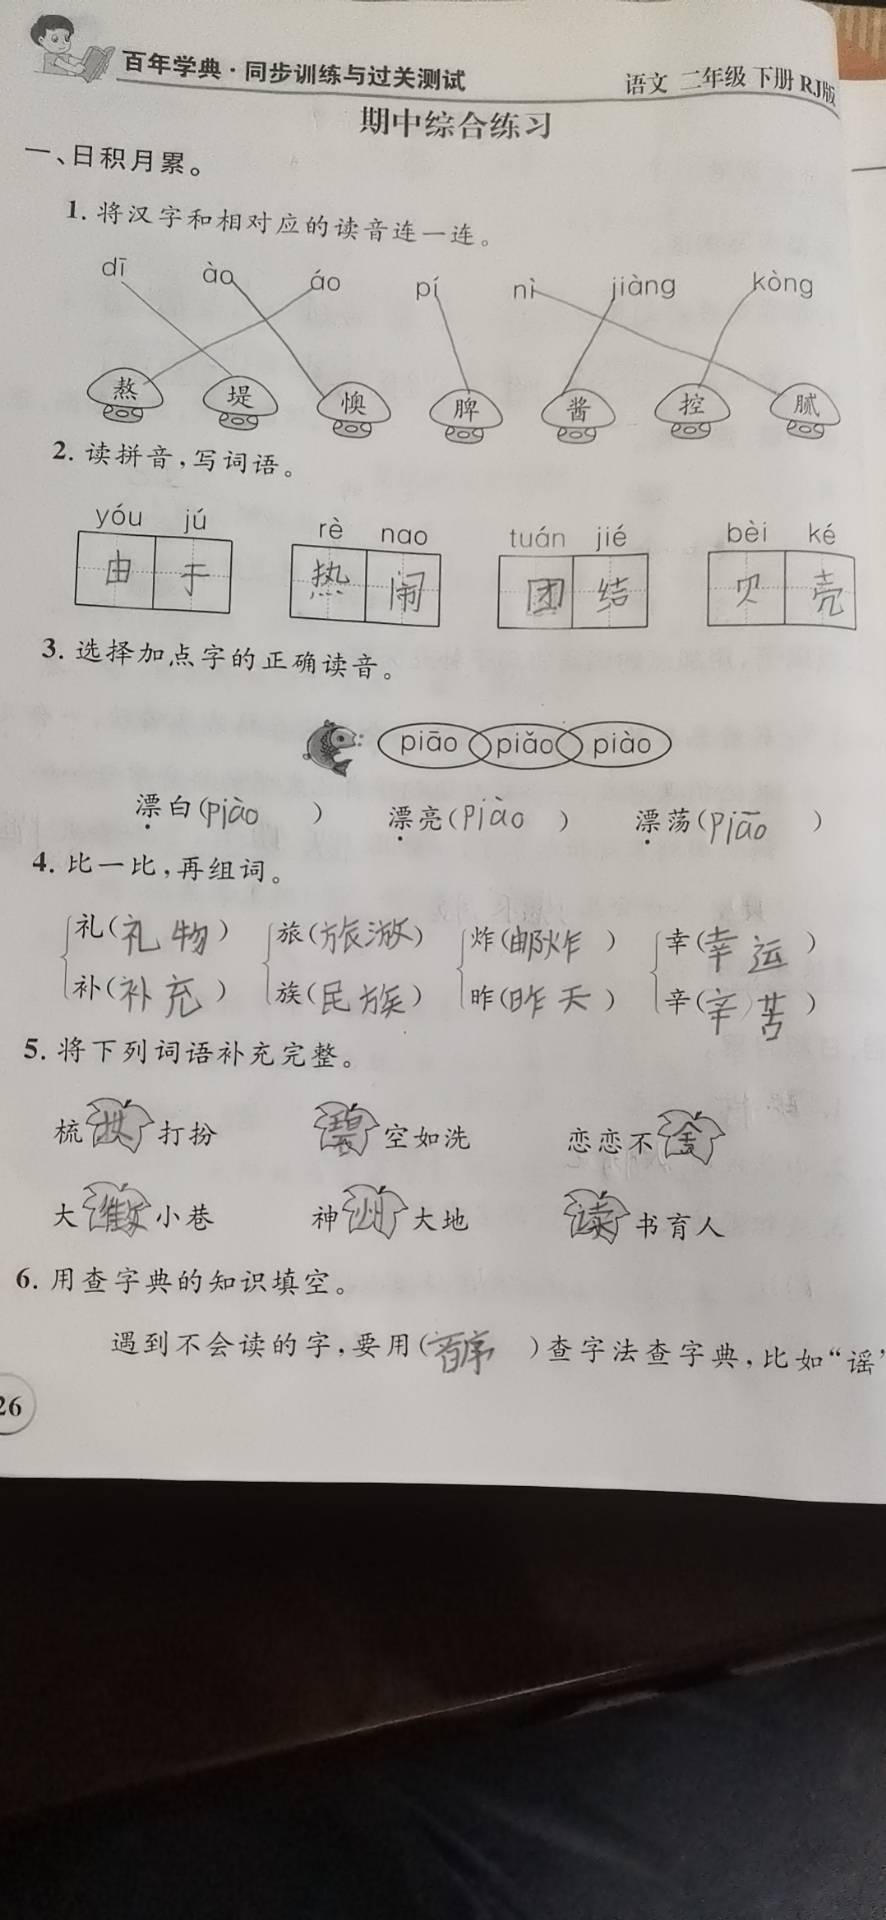 百年学典·同步训练与过关测试
语文 二年级 下册 RJ版
期中综合练习
一、日积月累。
1. 将汉字和相对应的读音连一连。
dī ào áo pí nì jiàng kòng
熬 堤 懊 脾 酱 控 腻
2. 读拼音,写词语。
yóu jú rè nao tuán jié bèi ké
由 于 热 闹 团 结 贝 壳
3. 选择加点字的正确读音。
piāo piǎo piào
漂白(piào) 漂亮(piào) 漂荡(piāo)
4. 比一比,再组词。
礼(礼物) 旅(旅游) 炸(邮炸) 幸(幸运)
补(补充) 族(民族) 昨(昨天) 辛(辛苦)
5. 将下列词语补充完整。
梳 打扮 碧空如洗 恋恋不舍
大 小巷 神州大地 读书育人
6. 用查字典的知识填空。
遇到不会读的字,要用( 序 )查字法查字典,比如“谣”
26